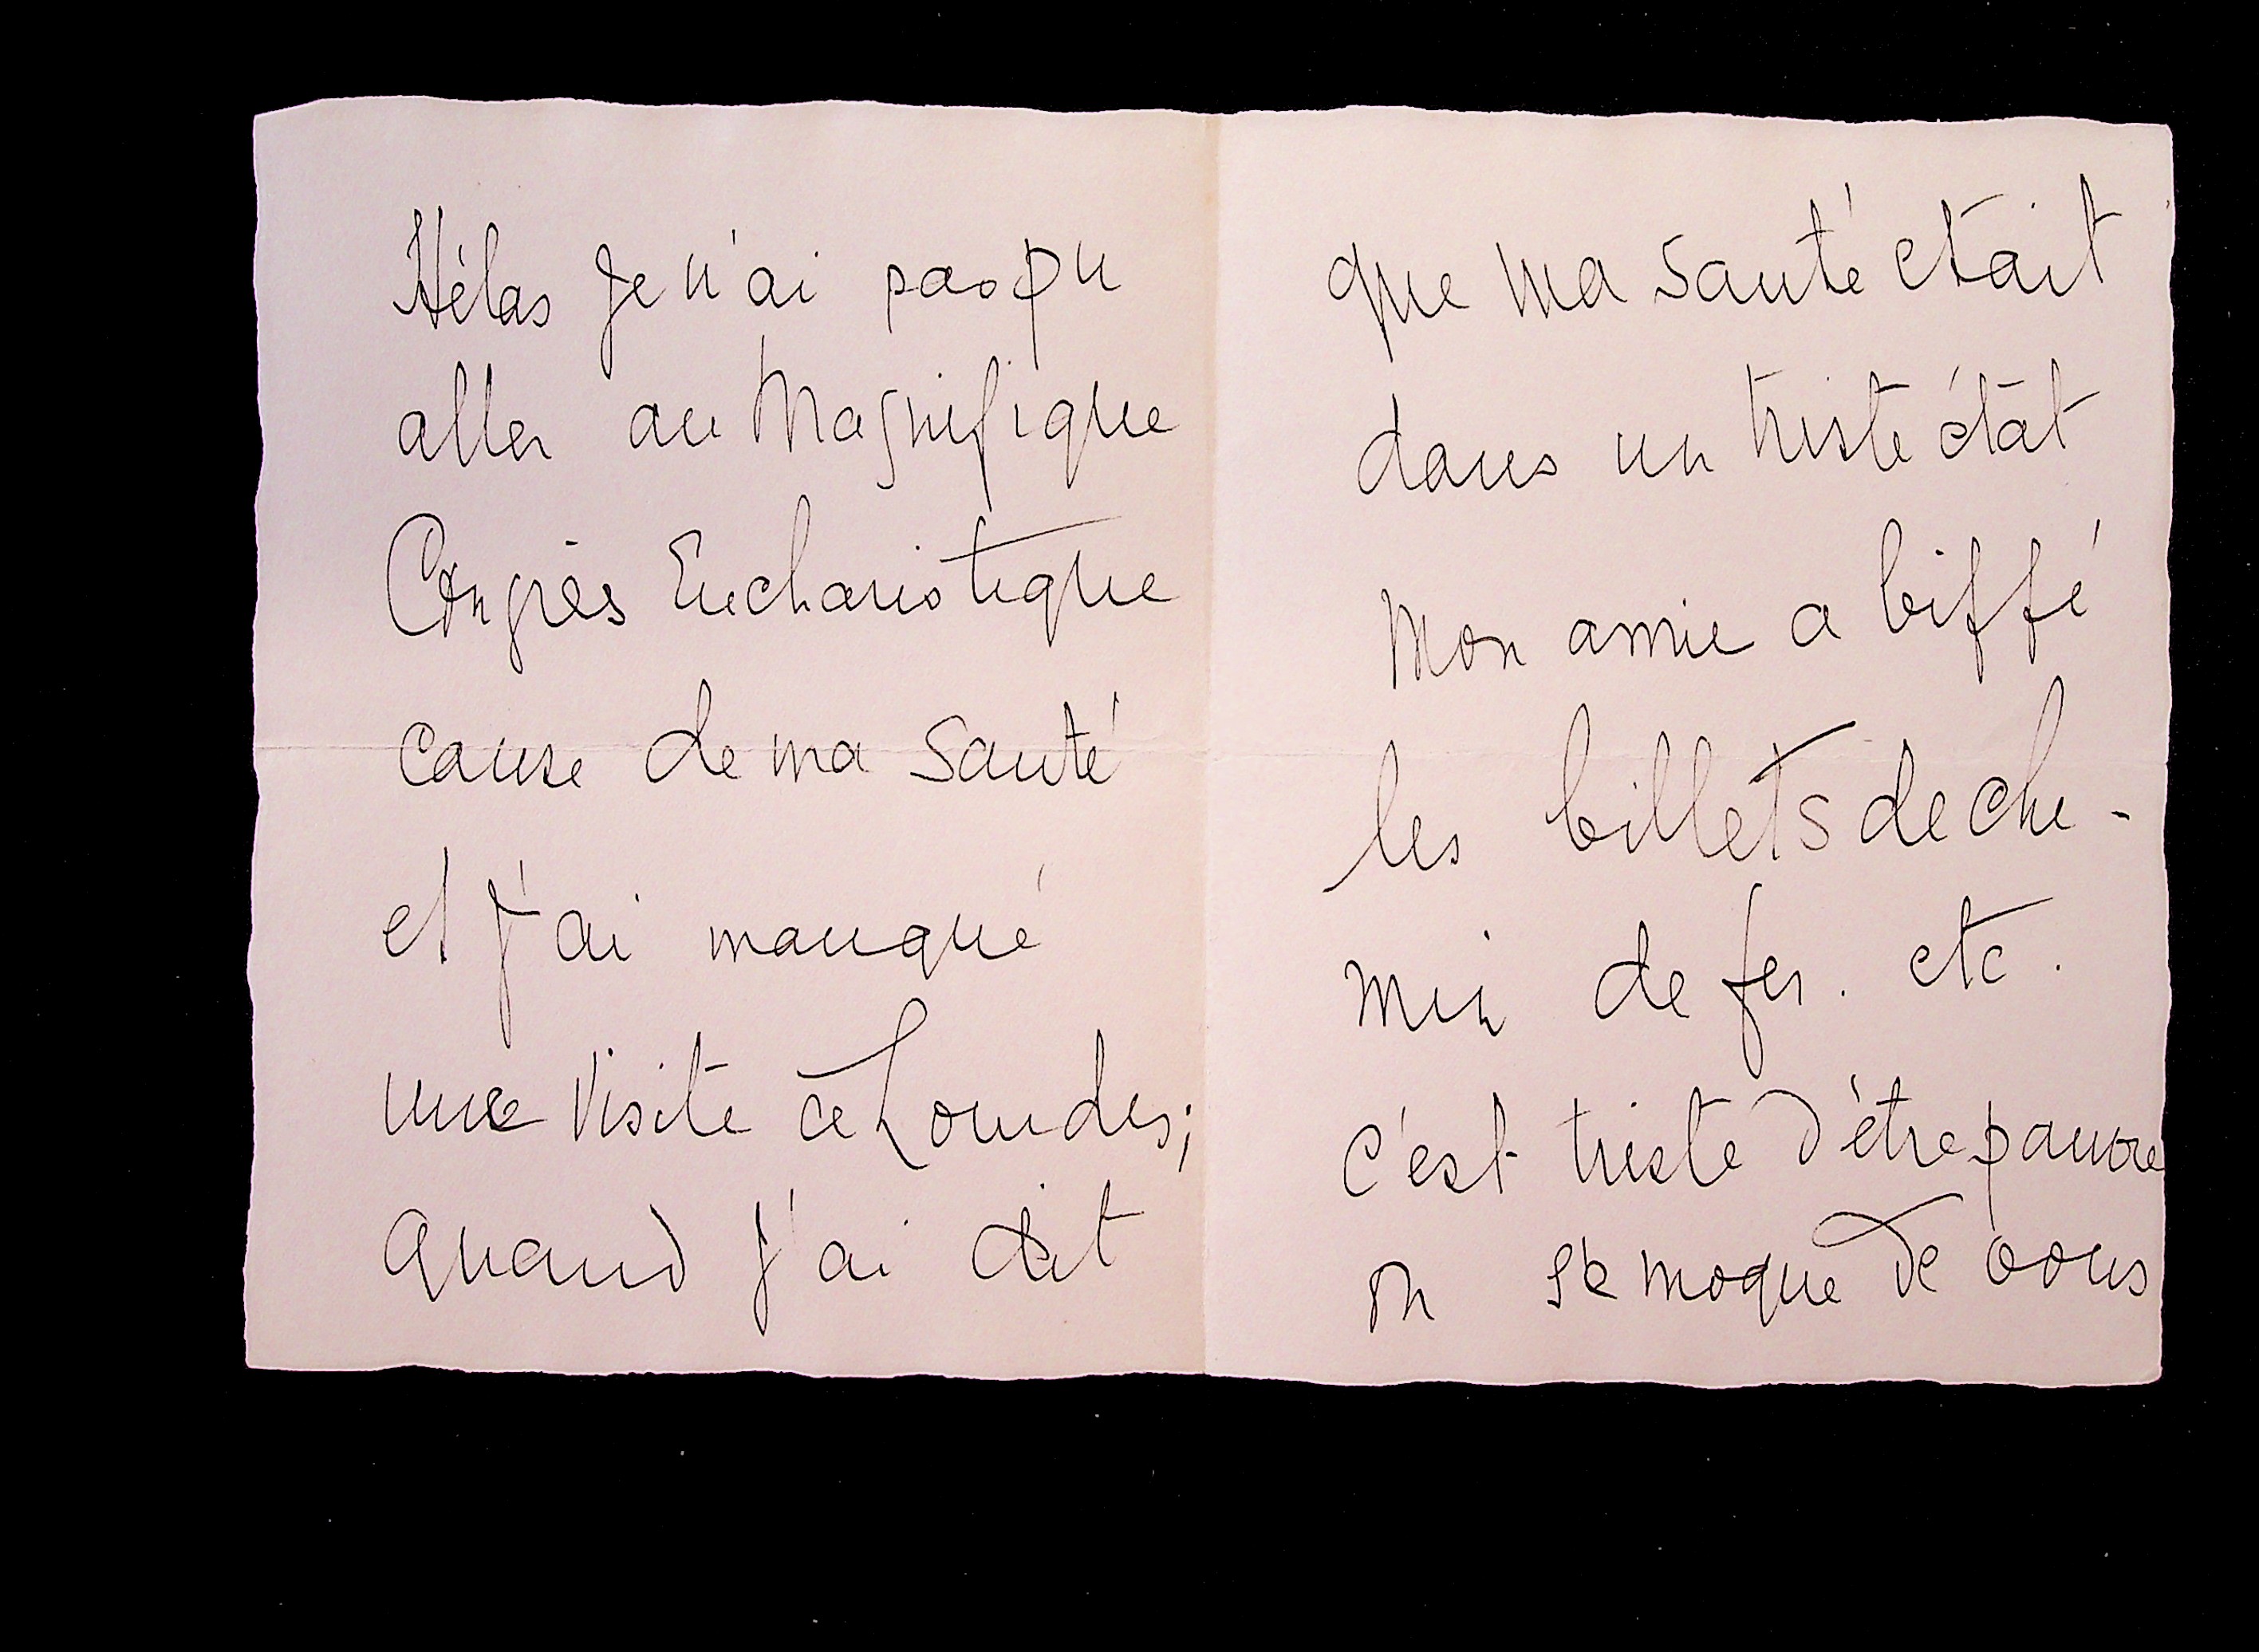 Hélas Je n'ai pas pu
aller au Magnifique
Congrès Eucharistique
cause de ma Santé
et j'ai manqué
une Visite à Lourdes;
quand j'ai dit
que ma Santé était
dans un triste état
Mon amie a biffé
les billets de che-
min de fer. etc.
c'est triste d'être pauvre
on se moque de vous